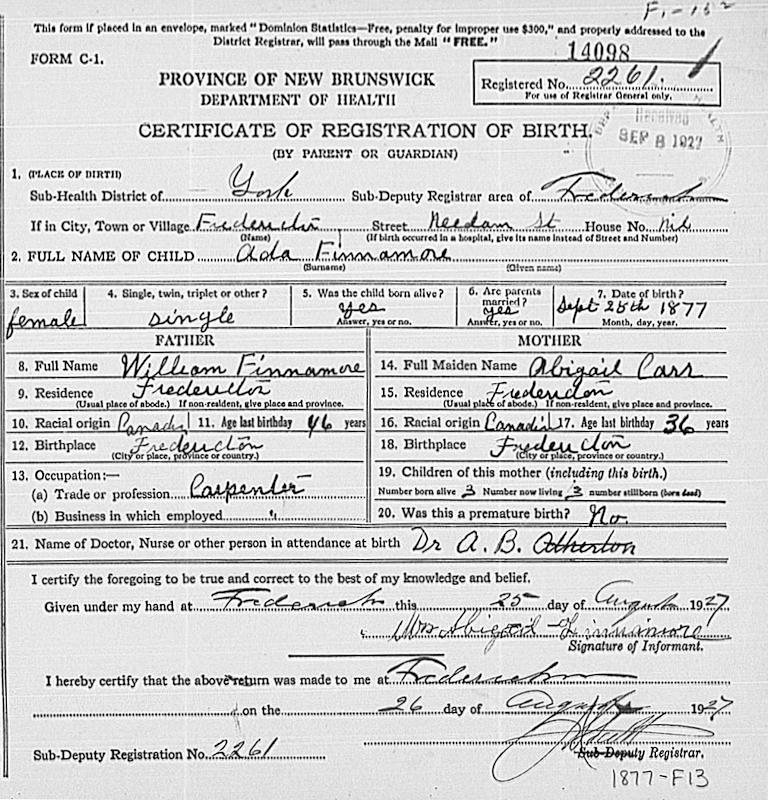 F1-13 2
This form if placed in an envelope, marked "Dominion Statistics—Free, penalty for improper use $300," and properly addressed to the
District Registrar, will pass through the Mail "FREE."
FORM C-1.
14098
PROVINCE OF NEW BRUNSWICK
DEPARTMENT OF HEALTH
Registered No. 2261.
For use of Registrar General only.
CERTIFICATE OF REGISTRATION OF BIRTH.
(BY PARENT OR GUARDIAN)
Received
SEP 8 1927
HEALTH
1. (PLACE OF BIRTH)
Sub-Health District of York Sub-Deputy Registrar area of Fredericton
If in City, Town or Village Fredericton Street Needam St House No. Nil
(Name) (If birth occurred in a hospital, give its name instead of Street and Number)
2. FULL NAME OF CHILD Ada Finnamore
(Surname) (Given name)
3. Sex of child 4. Single, twin, triplet or other? 5. Was the child born alive? 6. Are parents married? 7. Date of birth?
female single yes yes Sept 25th 1877
Answer, yes or no. Answer, yes or no. Month, day, year.
FATHER MOTHER
8. Full Name William Finnamore 14. Full Maiden Name Abigail Carr
9. Residence Fredericton 15. Residence Fredericton
(Usual place of abode.) If non-resident, give place and province. (Usual place of abode.) If non-resident, give place and province.
10. Racial origin Canadi 11. Age last birthday 46 years 16. Racial origin Canadi 17. Age last birthday 36 years
12. Birthplace Fredericton 18. Birthplace Fredericton
(City or place, province or country.) (City or place, province or country.)
13. Occupation:— 19. Children of this mother (including this birth.)
(a) Trade or profession Carpenter Number born alive 3 Number now living 3 number stillborn (born dead)
(b) Business in which employed " 20. Was this a premature birth? No.
21. Name of Doctor, Nurse or other person in attendance at birth Dr A. B. Atherton
I certify the foregoing to be true and correct to the best of my knowledge and belief.
Given under my hand at Fredericton this 25 day of August 1927
Mrs Abigail Finnimore
Signature of Informant.
I hereby certify that the above return was made to me at Fredericton
on the 26 day of August 1927
Sub-Deputy Registration No. 2261 Sub-Deputy Registrar.
1877-F13